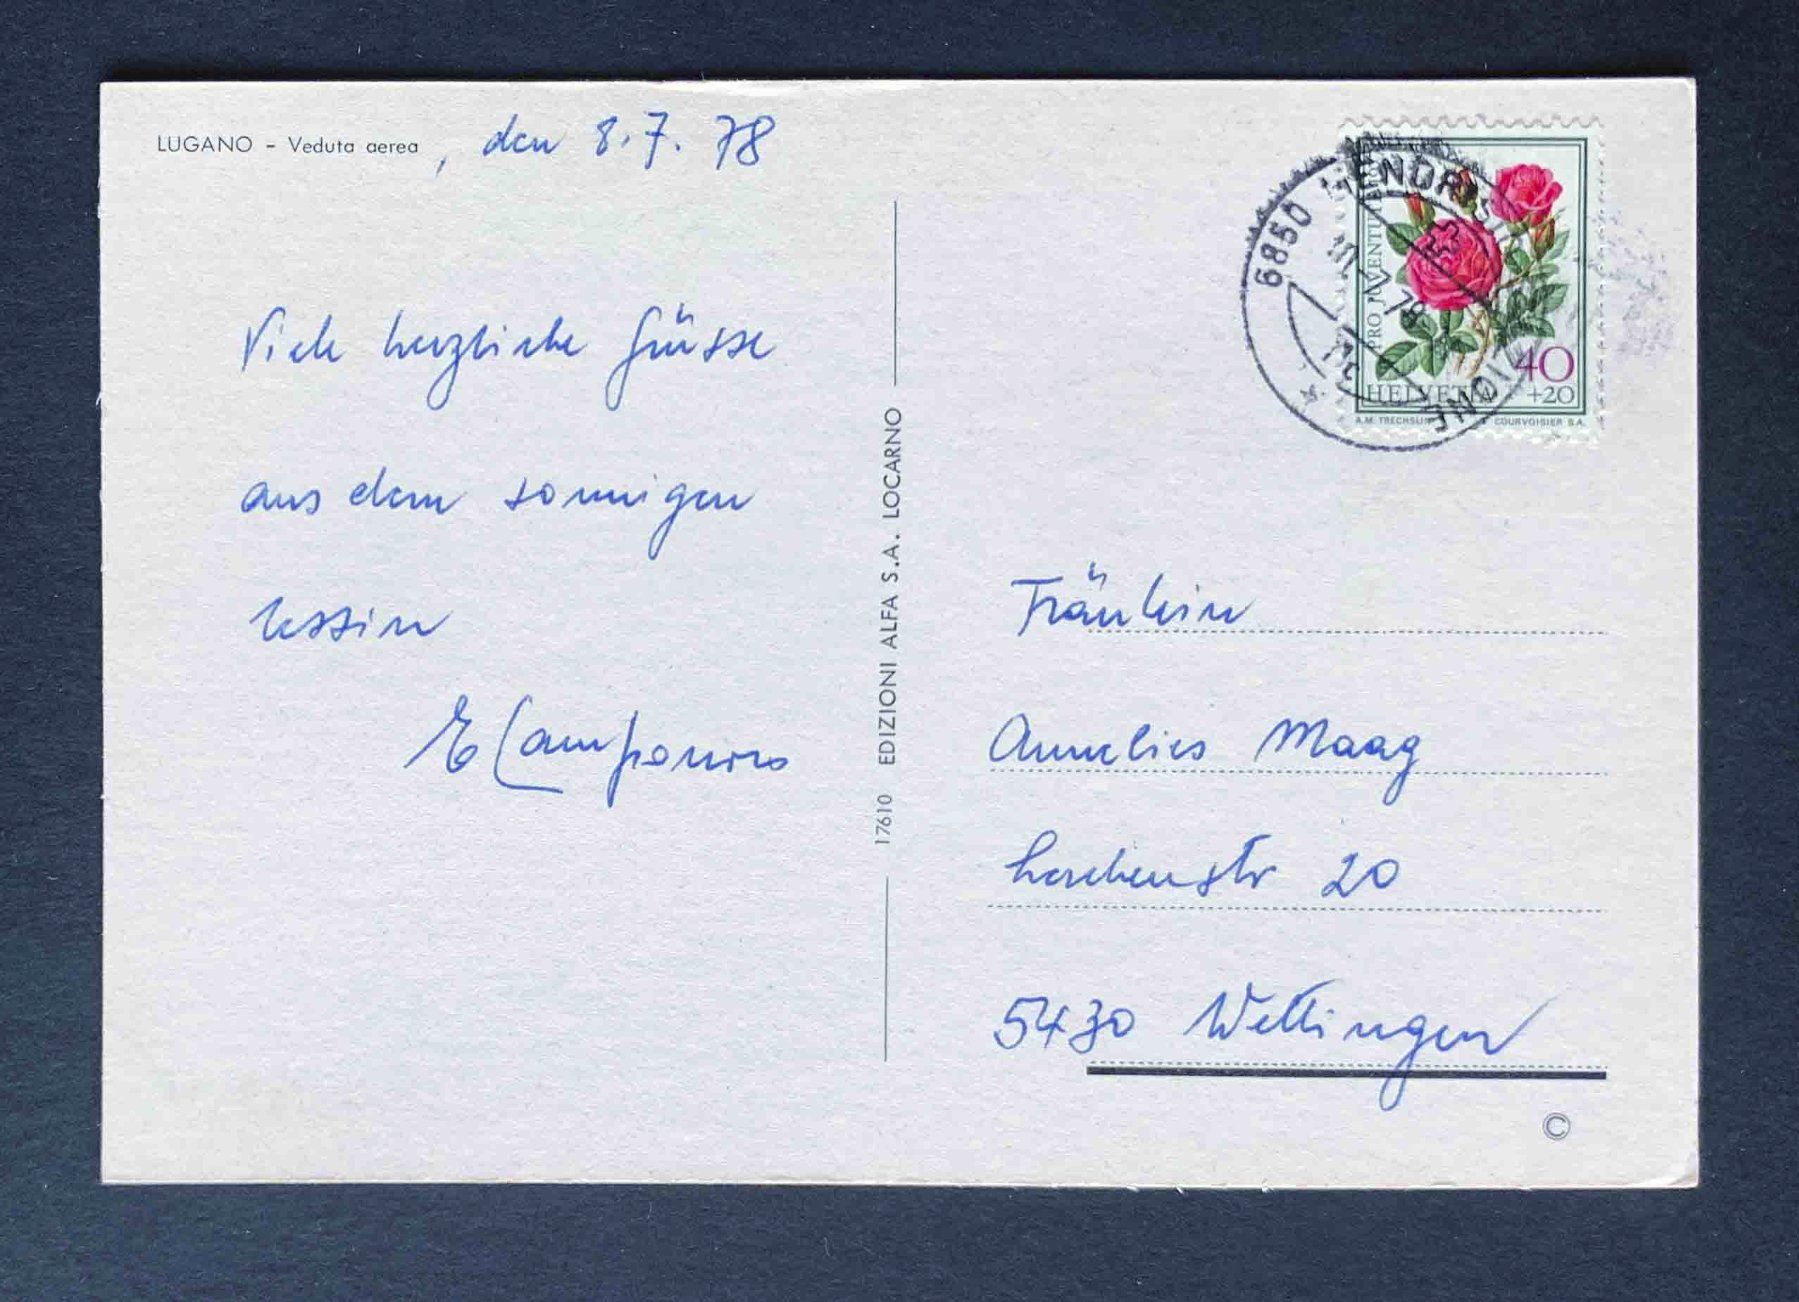 LUGANO - Veduta aerea, den 8.7.78
Viele herzliche Grüsse
aus dem sonnigen
Tessin
17610 EDIZIONI ALFA S.A. LOCARNO
6850 MENDRISIO STAZIONE
10.-7.78
PRO JUVENTUTE
40
HELVETIA +20
A.M. TRECHSLIN COURVOISIER S.A.
Fräulein
Annelies Maag
Lerchenstr 20
5430 Wettingen
©